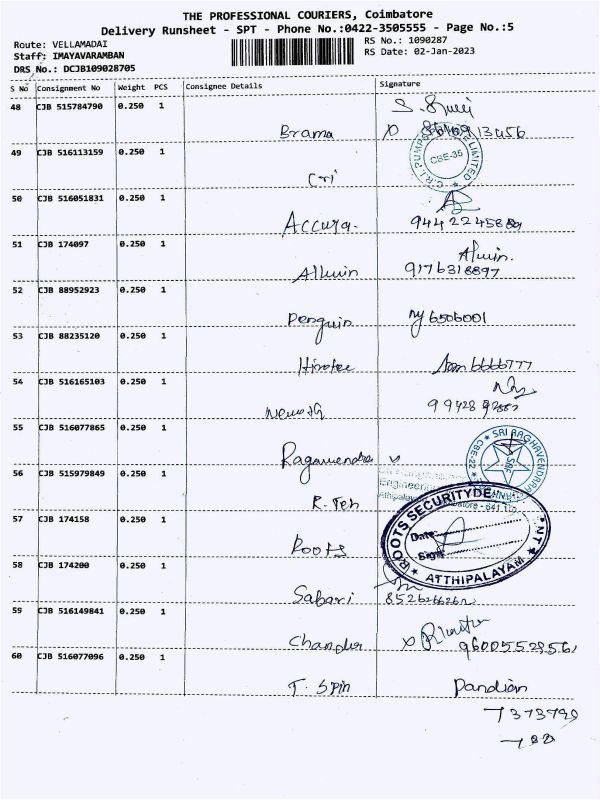 THE PROFESSIONAL COURIERS, Coimbatore
Delivery Runsheet - SPT - Phone No.:0422-3505555 - Page No.:5
Route: VELLAMADAI
RS No.: 1090287
Staff: IMAYAVARAMBAN
RS Date: 02-Jan-2023
DRS No.: DCJB109028705
S No Consignment No Weight PCS Consignee Details Signature
48 CJB 515784790 0.250 1
Brama
49 CJB 516113159 0.250 1
C.R.I. PUMPS LIMITED
CBE-35
Cri
50 CJB 516051831 0.250 1
Accura. 9442245889
51 CJB 174097 0.250 1
Alwin.
Allwin 9176318897
52 CJB 88952923 0.250 1
Penguin 6506001
53 CJB 88235120 0.250 1
6666777
54 CJB 516165103 0.250 1
55 CJB 516077865 0.250 1
SRI RAGHAVENDRA
CBE-22
Ragavendra
56 CJB 515979849 0.250 1
R. Teh
57 CJB 174158 0.250 1
ROOTS SECURITY
Date:
Sign:
ATTHIPALAYAM
Roots
58 CJB 174200 0.250 1
Sabari
59 CJB 516149841 0.250 1
Chandler
60 CJB 516077096 0.250 1
T. Spin Pandian